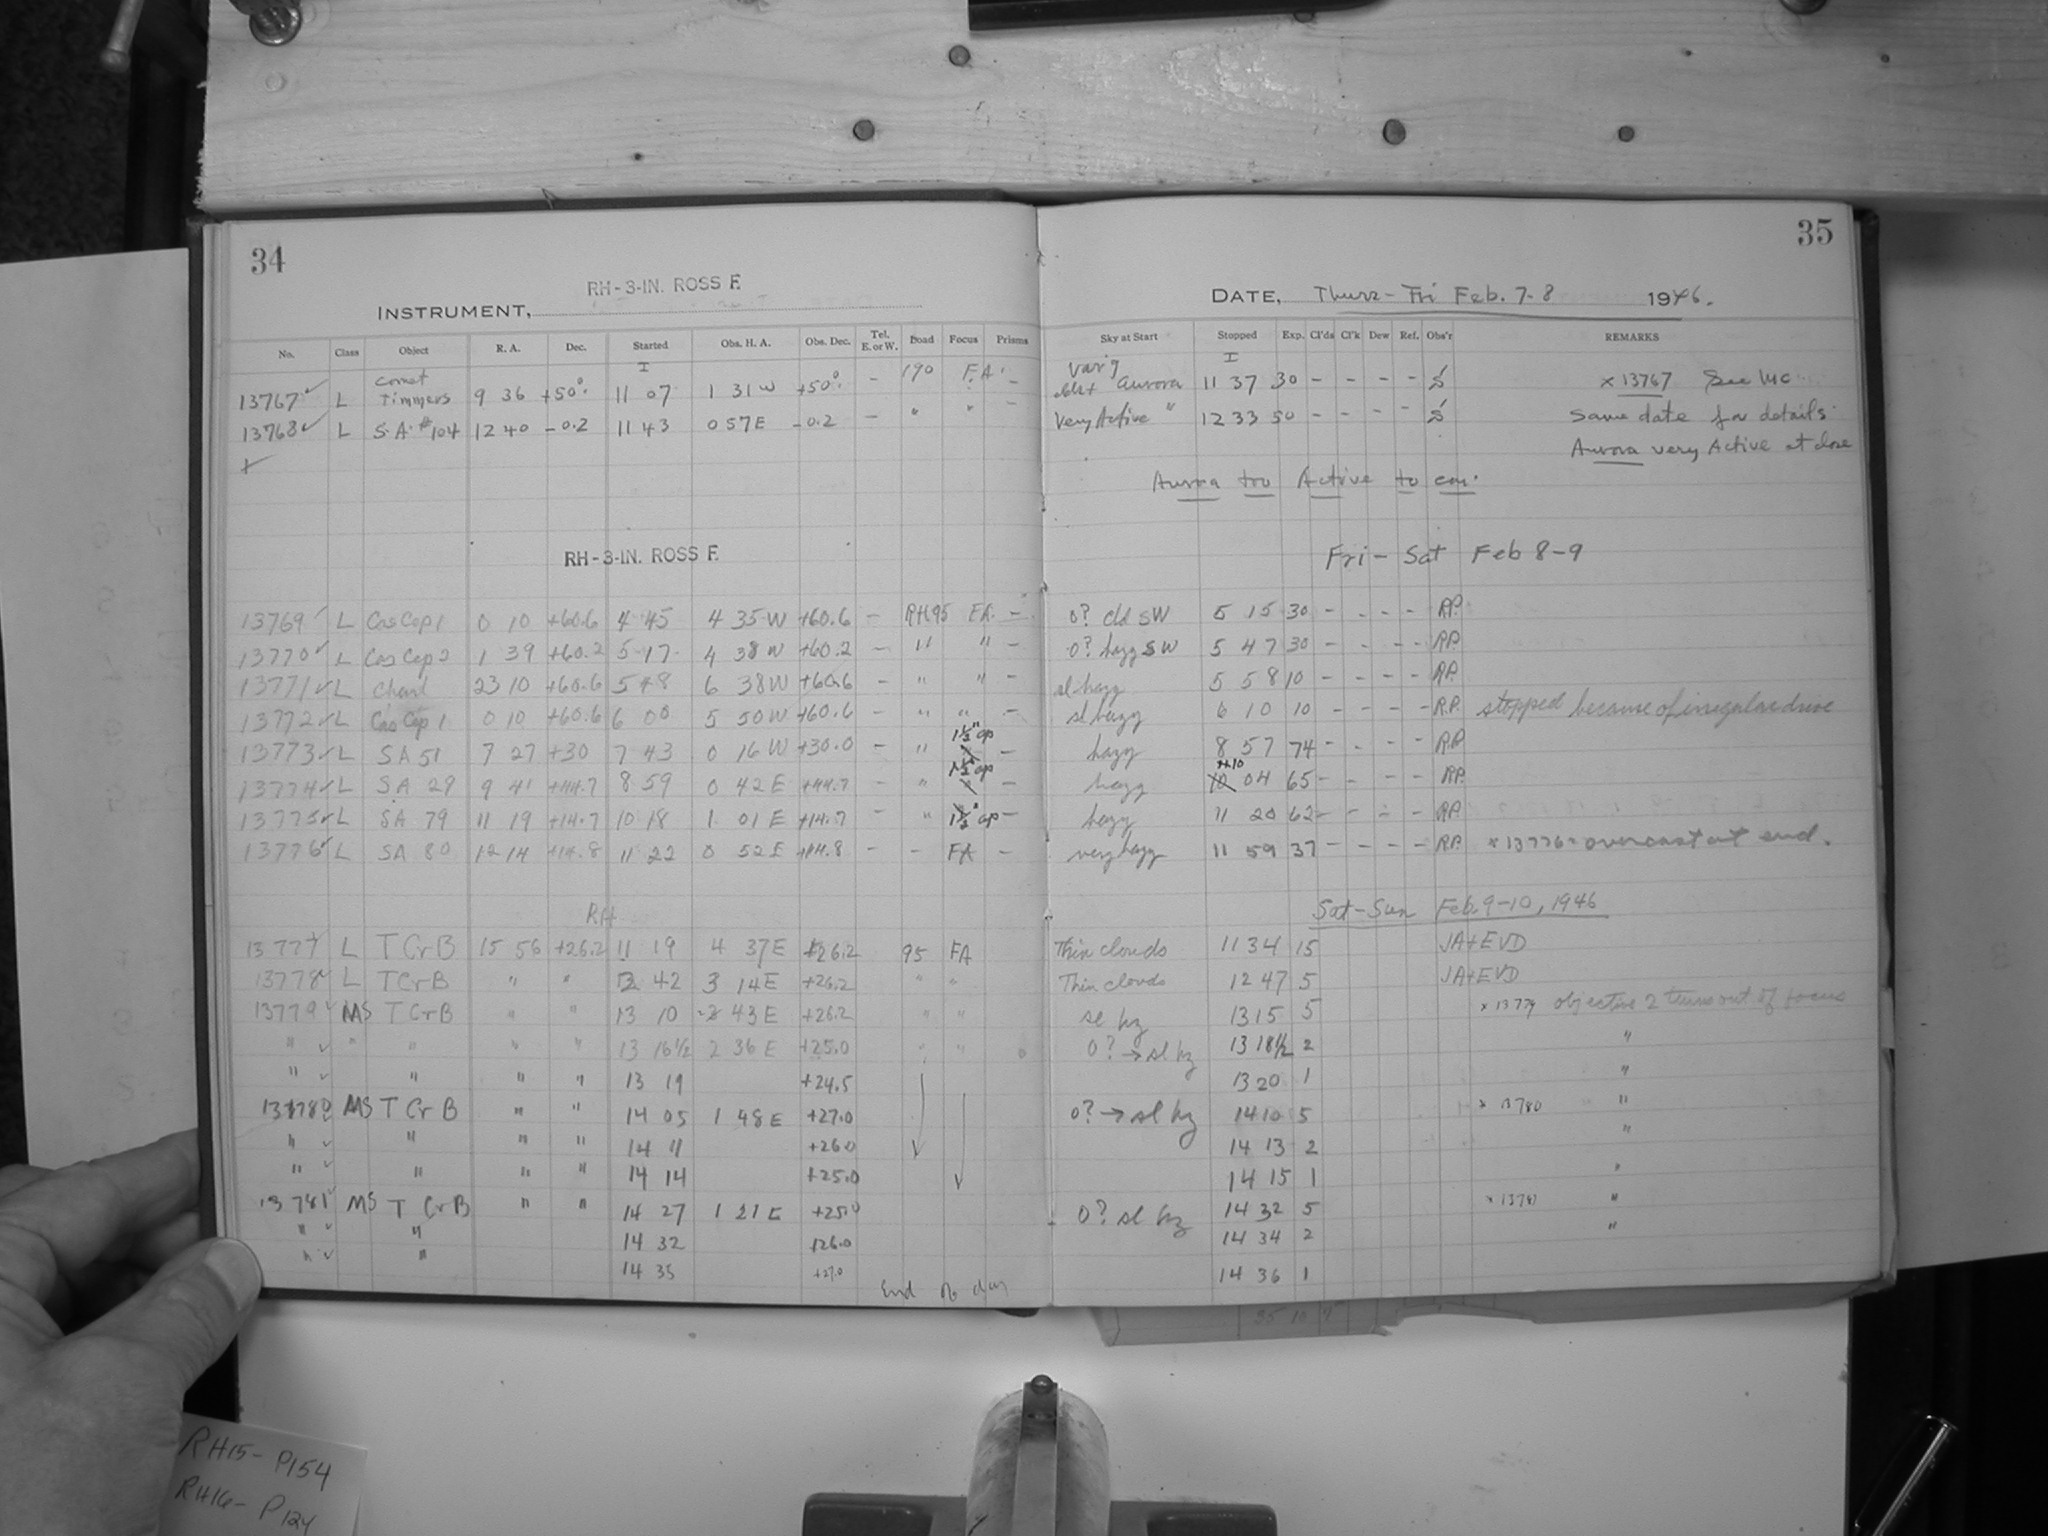 34
RH-3-IN. ROSS F.
INSTRUMENT,
No. Class Object R. A. Dec. Started Obs. H. A. Obs. Dec. Tel. E. or W. Quad Focus Prisms
I
13767 L Comet Timmers 9 36 +50°. 11 07 1 31 W +50°. - 190 F.A. -
13768 L S.A. #104 12 40 -0.2 11 43 0 57 E -0.2 - " " -
RH-3-IN. ROSS F.
13769 L Cas Cep 1 0 10 +60.6 4 45 4 35 W +60.6 - RH95 FA. -
13770 L Cas Cep 2 1 39 +60.2 5 17 4 38 W +60.2 - " " -
13771 L 23 10 +60.6 5 48 6 38 W +60.6 - " " -
13772 L Cas Cep 1 0 10 +60.6 6 00 5 50 W +60.6 - " " -
13773 L SA 51 7 27 +30 7 43 0 16 W +30.0 - " 1½" ap -
13774 L SA 29 9 41 +44.7 8 59 0 42 E +44.7 - " 1½" ap -
13775 L SA 79 11 19 +14.7 10 18 1 01 E +14.7 - " 1½" ap -
13776 L SA 80 12 14 +14.8 11 22 0 52 E +14.8 - - FA -
RH
13777 L T CrB 15 56 +26.2 11 19 4 37 E +26.2 95 FA
13778 L T CrB " " 12 42 3 14 E +26.2 " "
13779 MS T CrB " " 13 10 2 43 E +26.2 " "
" " " " " 13 16½ 2 36 E +25.0 " "
" " " " 13 19 +24.5
13780 MS T CrB " " 14 05 1 48 E +27.0
" " " " 14 11 +26.0
" " " " 14 14 +25.0
13781 MS T CrB " " 14 27 1 21 E +25.0
" " 14 32 +26.0
" " 14 35 +27.0
End
35
DATE, Thurs-Fri Feb. 7-8 1946.
Sky at Start Stopped Exp. Cl'ds Cl'k Dew Ref. Obs'r REMARKS
I
Var'g
Aurora 11 37 30 - - - - S x 13767 See MC
Very Active " 12 33 50 - - - - S Same date for details.
Aurora very Active at close
Aurora too Active to con.
Fri - Sat Feb 8-9
0? cld SW 5 15 30 - - - - R.P.
0? hazy SW 5 47 30 - - - - R.P.
sl hazy 5 58 10 - - - - R.P.
sl hazy 6 10 10 - - - - R.P. stopped because of irregular drive
hazy 8 57 74 - - - - R.P.
hazy 10 04 65 - - - - R.P.
hazy 11 20 62 - - - - R.P.
very hazy 11 59 37 - - - - R.P. x 13776 = overcast at end.
Sat-Sun Feb. 9-10, 1946
Thin clouds 11 34 15 JA+EVD
Thin clouds 12 47 5 JA+EVD
sl hz 13 15 5 x 13779 objective 2 turns out of focus
0? → sl hz 13 18½ 2 "
13 20 1 "
0? → sl hz 14 10 5 x 13780 "
14 13 2 "
14 15 1 "
0? sl hz 14 32 5 x 13781 "
14 34 2 "
14 36 1
35 10
RH15- P154
RH16- P124